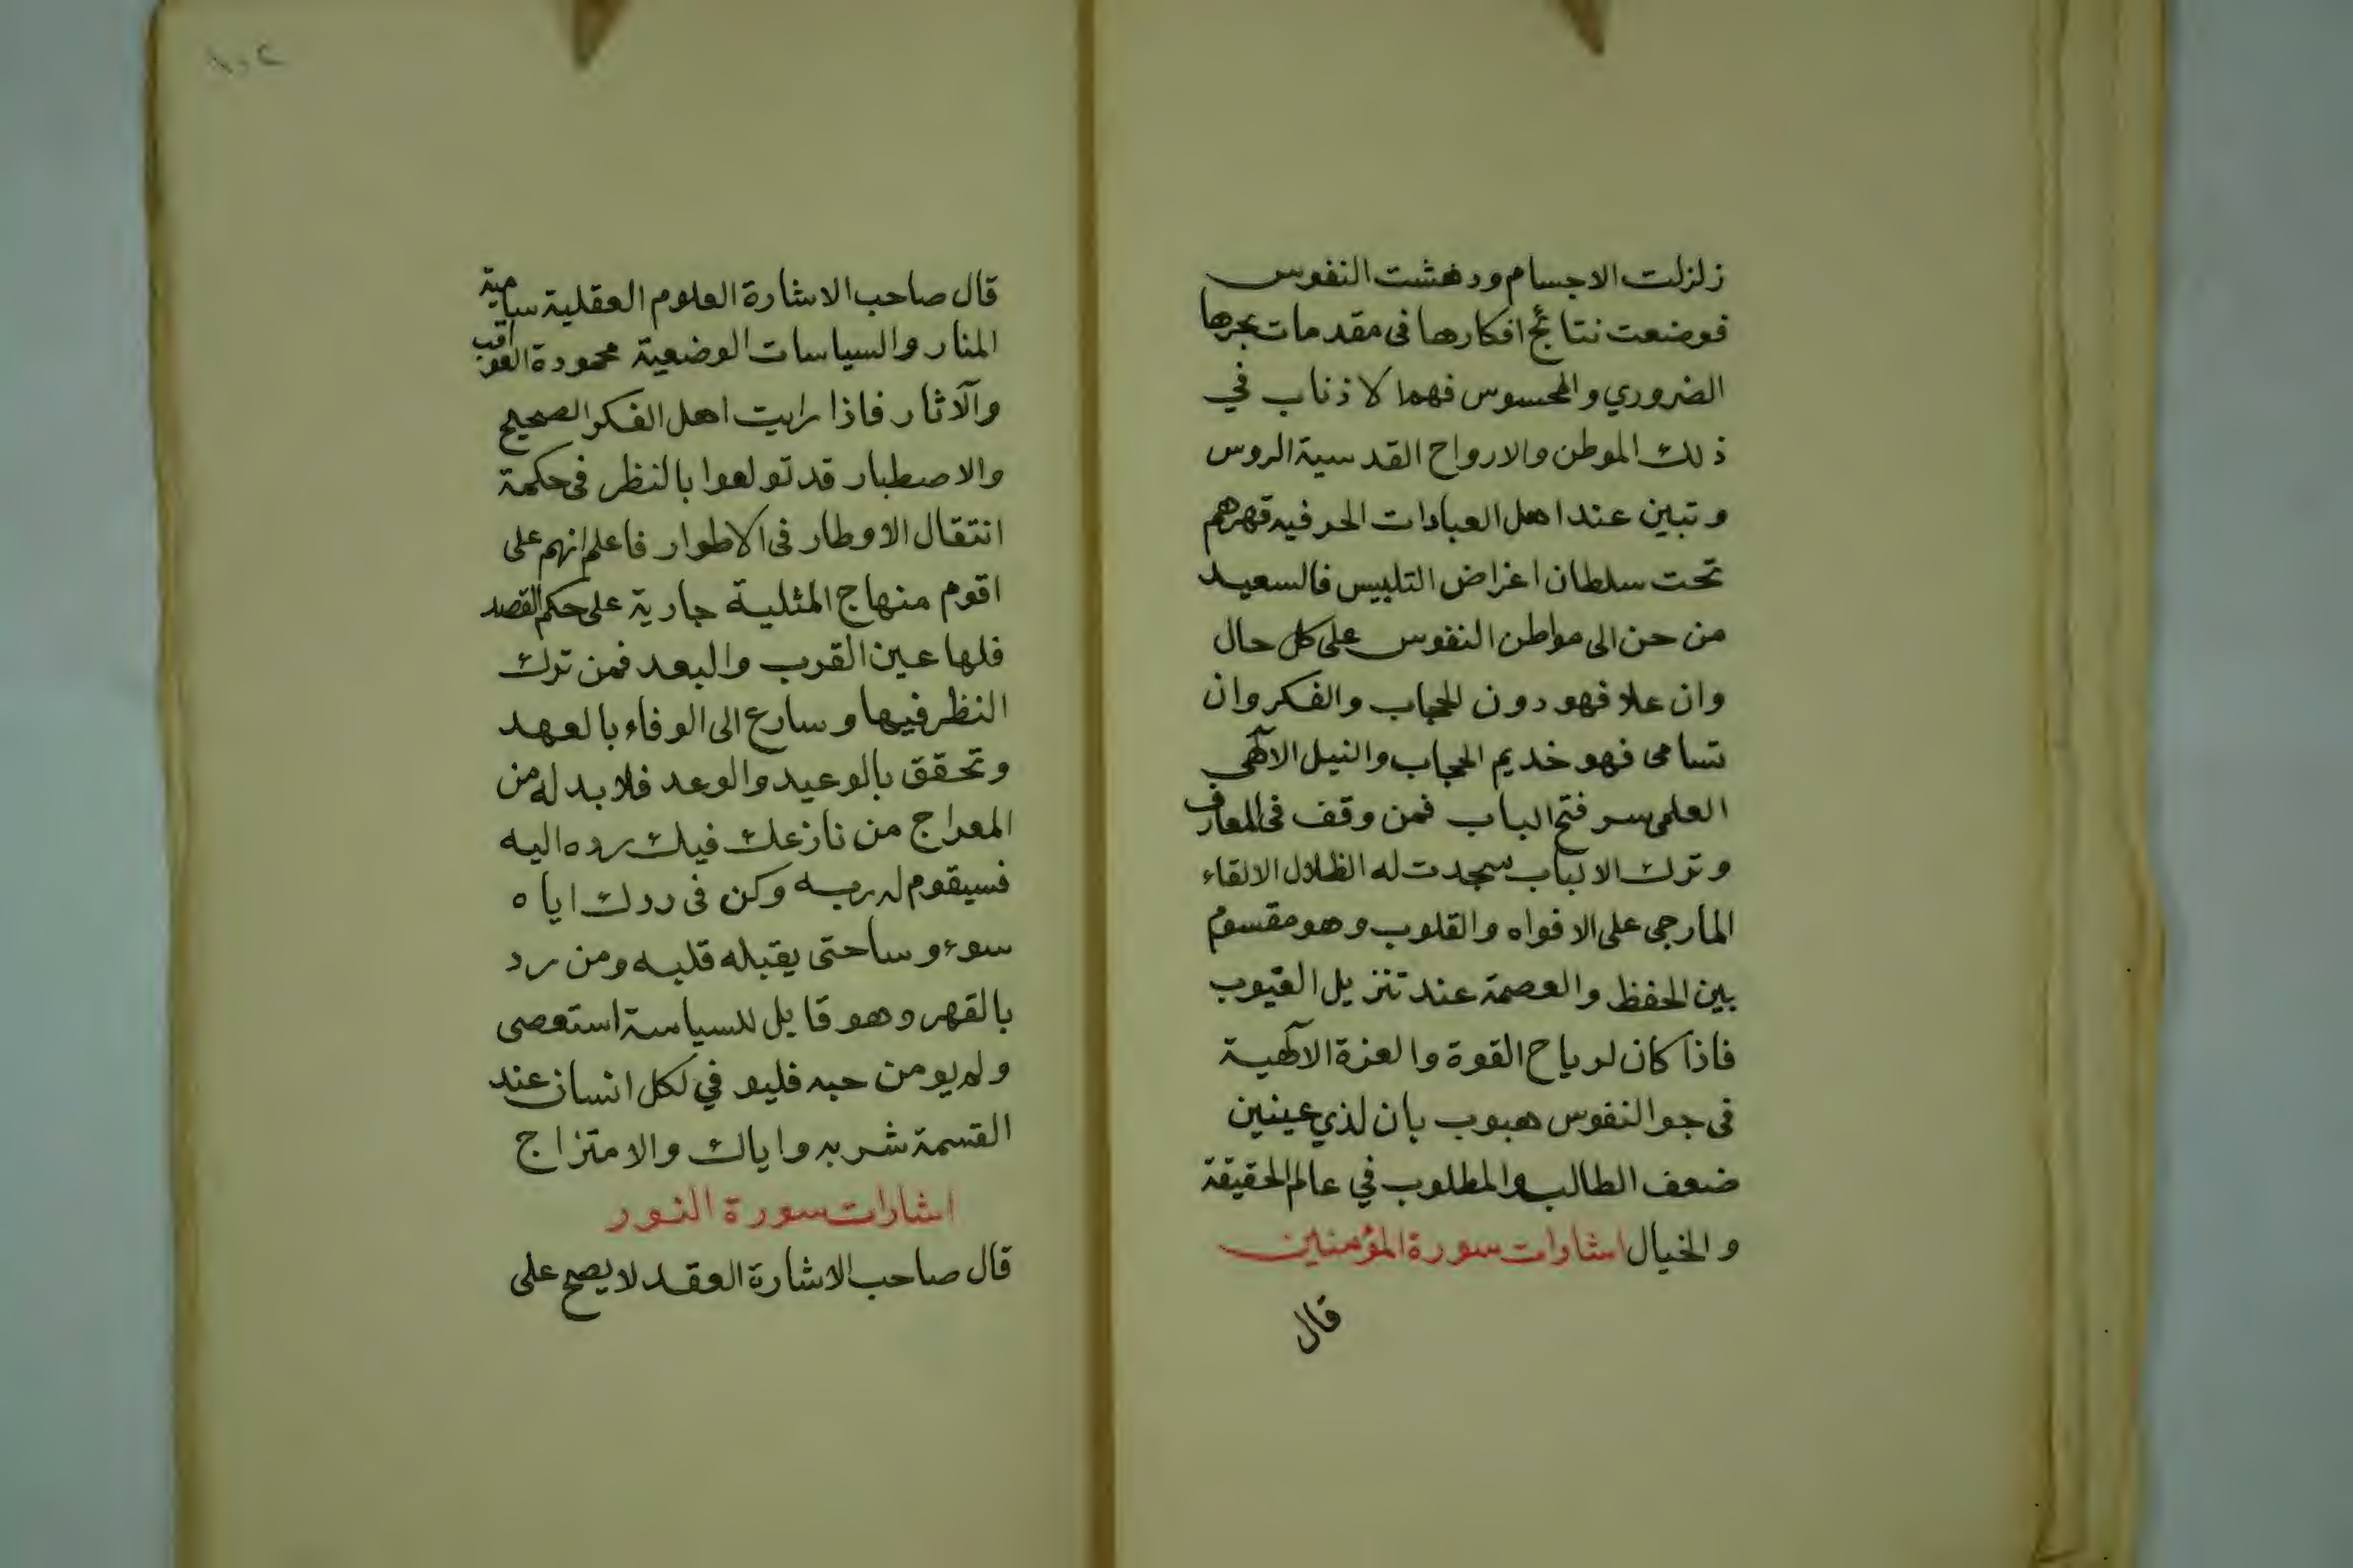 زلزلت الاجسام ودهشت النفوس
فوضعت نتائج افكارها فى مقدمات بحرها
الضروري والمحسوس فهما كلا ذناب في
ذلك الموطن والارواح القدسية الروس
وتبين عند اهل العبادات الحرفيه قهرهم
تحت سلطان اغراض التلبيس فالسعيد
من حن الى مواطن النفوس على كل حال
وان علا فهو دون للحجاب والفكر وان
تسامى فهو خديم الحجاب والنيل الآلهي
العلمى سر فتح الباب فمن وقف فى المعارف
وترك الالباب سجدت له الظلال الالقاء
المارجى على الافواه والقلوب وهو مقسوم
بين الحفظ والعصمة عند تنزيل الغيوب
فاذا كان لرياح القوة والعزة الآلهية
فى جو النفوس هبوب بان لذي عينين
ضعف الطالب والمطلوب في عالم الحقيقة
والخيال اشارات سورة المؤمنين
قال
١٠٢
قال صاحب الاشارة العلوم العقلية سامية
المنار والسياسات الوضعية محمودة العواقب
والآثار فاذا رايت اهل الفكر الصحيح
والاصطبار قد تولعوا بالنظر فى حكمة
انتقال الاوطار فى الاطوار فاعلم انهم على
اقوم منهاج المثلية جارية على حكم القصد
فلها عين القرب والبعد فمن ترك
النظر فيها وسارع الى الوفاء بالعهد
وتحقق بالوعيد والوعد فلا بد له من
المعراج من نازعك فيك رده اليه
فسيقوم له ربه وكن فى ردك اياه
سوء وساحتى يقبله قلبه ومن رد
بالقهر وهو قايل للسياسة استعصى
ولم يومن حبه فليو في لكل انسان عند
القسمة شربه واياك والامتزاج
اشارات سورة النور
قال صاحب الاشارة العقد لا يصح على